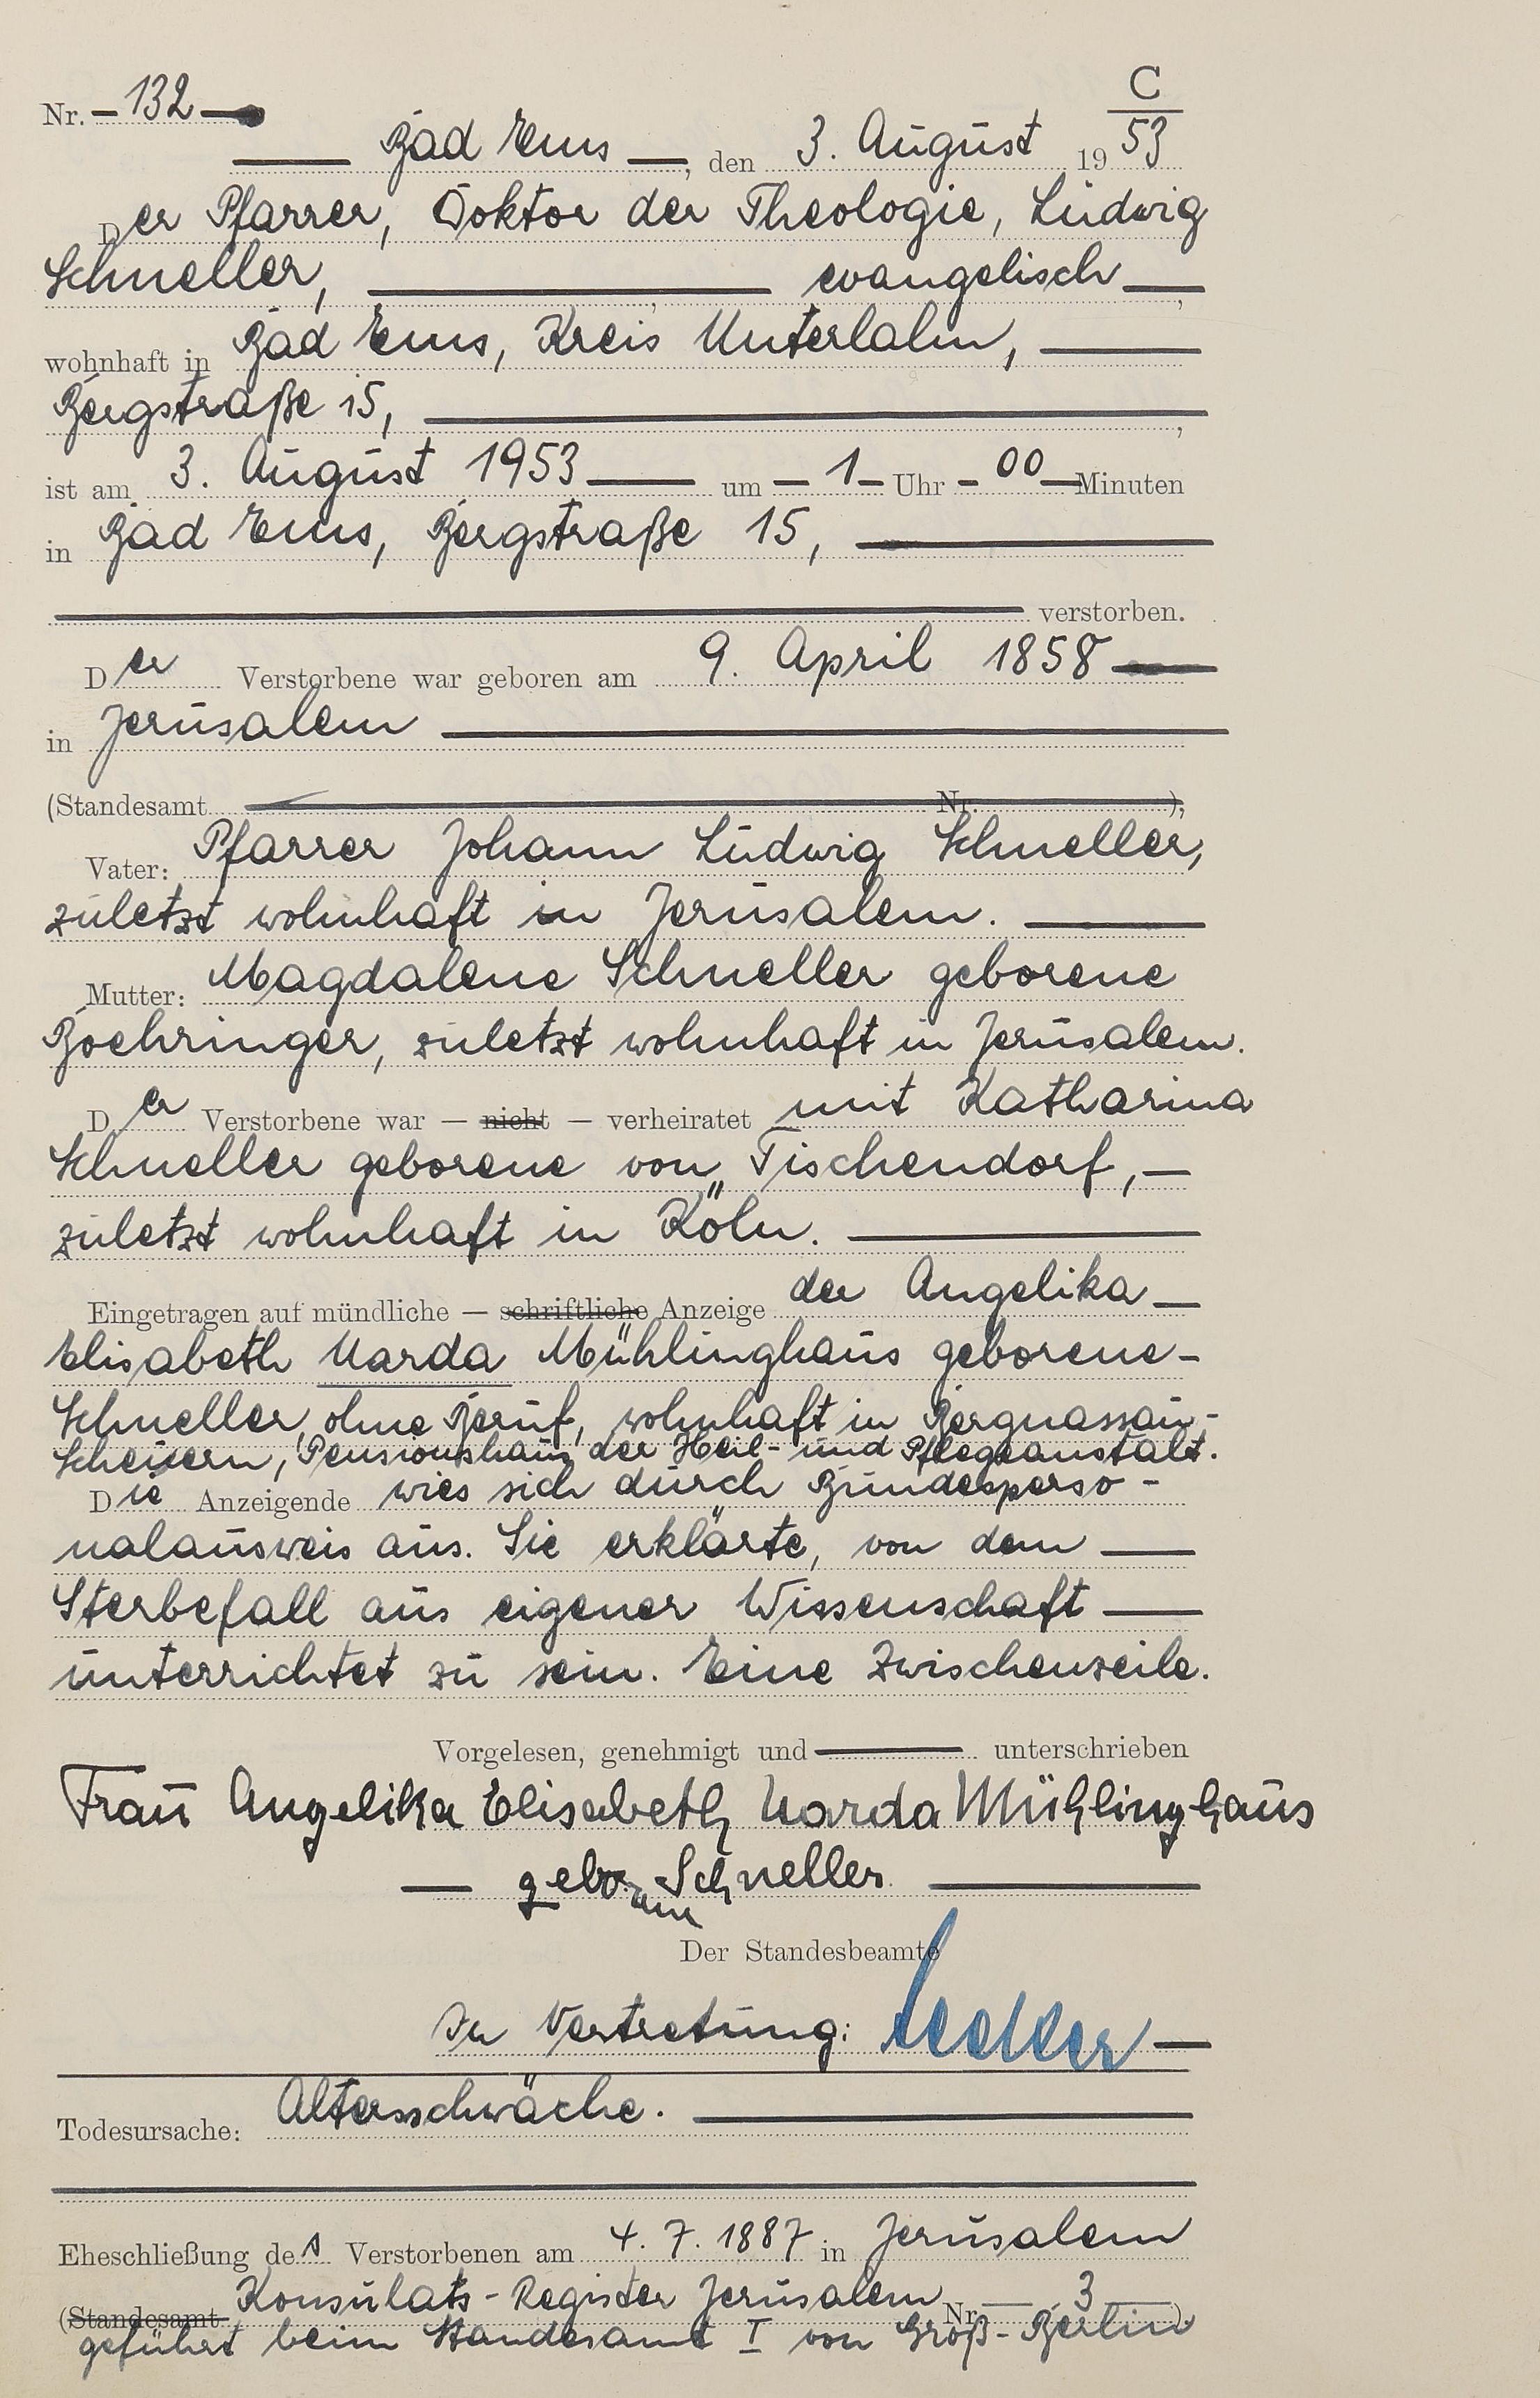 C
Nr. 132
Bad Ems, den 3. August 1953
Der Pfarrer, Doktor der Theologie, Ludwig
Schneller, evangelisch,
wohnhaft in Bad Ems, Kreis Unterlahn,
Bergstraße 15,
ist am 3. August 1953 um 1 Uhr 00 Minuten
in Bad Ems, Bergstraße 15,
verstorben.
Der Verstorbene war geboren am 9. April 1858
in Jerusalem
(Standesamt Nr. ),
Vater: Pfarrer Johann Ludwig Schneller,
zuletzt wohnhaft in Jerusalem.
Mutter: Magdalene Schneller geborene
Boehringer, zuletzt wohnhaft in Jerusalem.
Der Verstorbene war — nicht — verheiratet mit Katharina
Schneller geborene von Tischendorf,
zuletzt wohnhaft in Köln.
Eingetragen auf mündliche — schriftliche Anzeige der Angelika
Elisabeth Warda Mühlinghaus geborene
Schneller, ohne Beruf, wohnhaft in Bergnassau-
Scheuern, Pensionshaus der Heil- und Pflegeanstalt.
Die Anzeigende wies sich durch Bundesperso-
nalausweis aus. Sie erklärte, von dem
Sterbefall aus eigener Wissenschaft
unterrichtet zu sein. Eine Zwischenzeile.
Vorgelesen, genehmigt und unterschrieben
Frau Angelika Elisabeth Warda Mühlinghaus
geborene Schneller
Der Standesbeamte
In Vertretung:
Todesursache: Altersschwäche.
Eheschließung des Verstorbenen am 4. 7. 1887 in Jerusalem
(Standesamt Konsulats-Register Jerusalem Nr. 3 )
geführt beim Standesamt I von Groß-Berlin